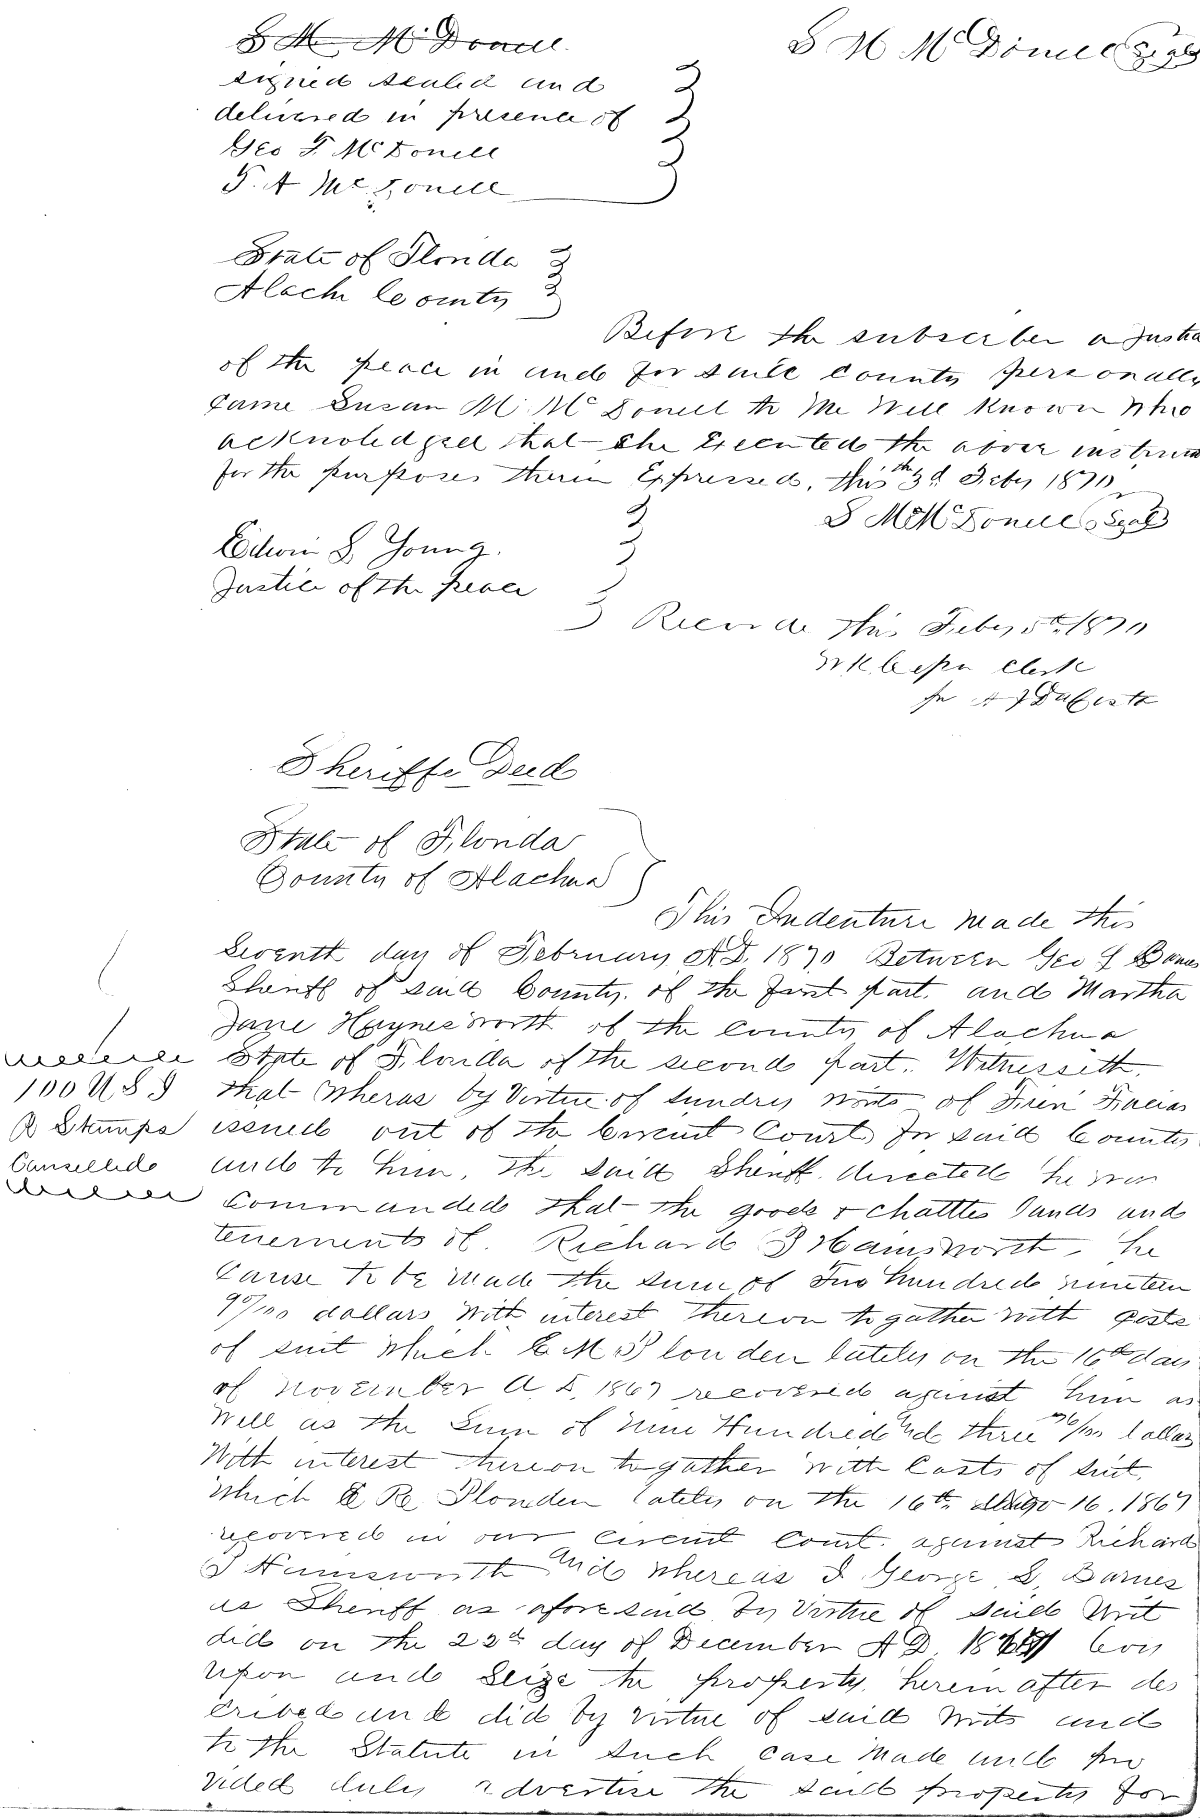 S M McDonell
S M McDonell (Seal)
signed sealed and
delivered in presence of
Geo F. McDonell
T. A McDonell
State of Florida
Alach County
Before the subscriber a Justice
of the peace in and for said County personally
came Susan M. McDonell to Me Well Known Who
acknoledged that She Executed the above instrum
for the purposes therin Expressed, this 3d Feby 1870
S M McDonell (Seal)
Edwin S. Young.
Justice of the peace
Recorde this Feby 5th 1870
Clerk
Sheriffs Deed
State of Florida
County of Alachua
This Indenture made this
Seventh day of February A.D. 1870 Between Geo S Barnes
Sheriff of said County of the first part and Martha
Jane Haynesworth of the County of Alachua
State of Florida of the second part. Witnesseth
100 U.S I
R Stamps
Canselled
that Wheras by Virtue of sundry writs of Fieri Facias
issued out of the Circuit Court for said County
and to him, the said Sheriff directed he was
Commanded that the goods & chattles lands and
tenements of Richard Hainsworth he
Cause to be made the sum of Two hundred nineteen
/100 dollars with interest thereon togather with Costs
of suit which E M Plouden lately on the 16th day
of November A D, 1867 recovered against him as
Well as the Sum of Nine Hundred And three 36/100 dollars
With interest thereon togather with Costs of suit,
Which E Re Plouden lately on the 16th 16. 1867
recovered in our circuit Court against Richard
Hainsworth And whereas I George S. Barnes
as Sheriff as aforesaid by Virtue of said Writ
did on the 22d day of December A D 18 levy
upon and Seize the property herein after des
cribed and did by virtue of said Writs and
to the Statute in such case made and pro
vided duly advertise the said property for